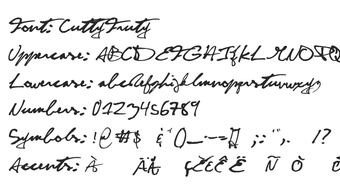 Font: CuttyFruty
Uppercase: ABCDEFGHIJKLMNOPQ
Lowercase: abcdefghijklmnopqrstuvwxyz
Numbers: 0123456789
Symbols: !@#$ ()_-~=[] ;:"',. !?
Accents: À ÄÅ ÇÈÉÊË Ñ Ò